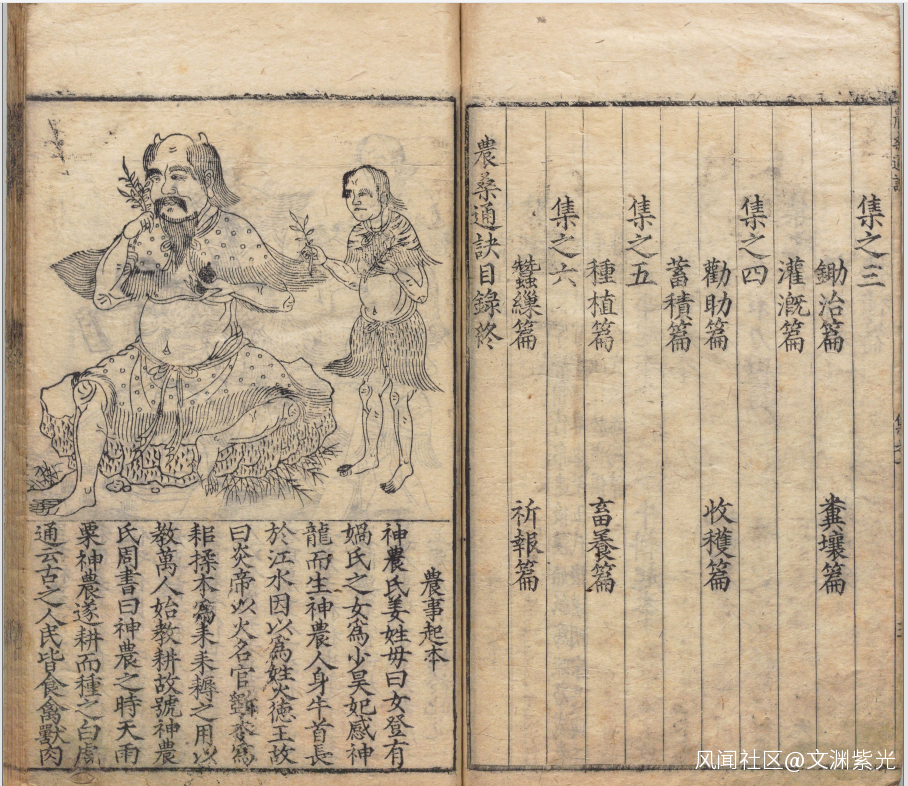 集之三
鋤治篇 糞壤篇
灌漑篇
集之四
勸助篇 收穫篇
蓄積篇
集之五
種植篇 畜養篇
集之六
蠶繅篇 祈報篇
農桑通訣目錄終
農事起本
神農氏姜姓母曰女登有
媧氏之女爲少昊妃感神
龍而生神農人身牛首長
於江水因以爲姓火德王故
曰炎帝以火名官斵木爲
耜揉木爲耒耒耨之用以
教萬人始教耕故號神農
氏周書曰神農之時天雨
粟神農遂耕而種之白虎
通云古之人民皆食禽獸肉
风闻社区@文渊紫光